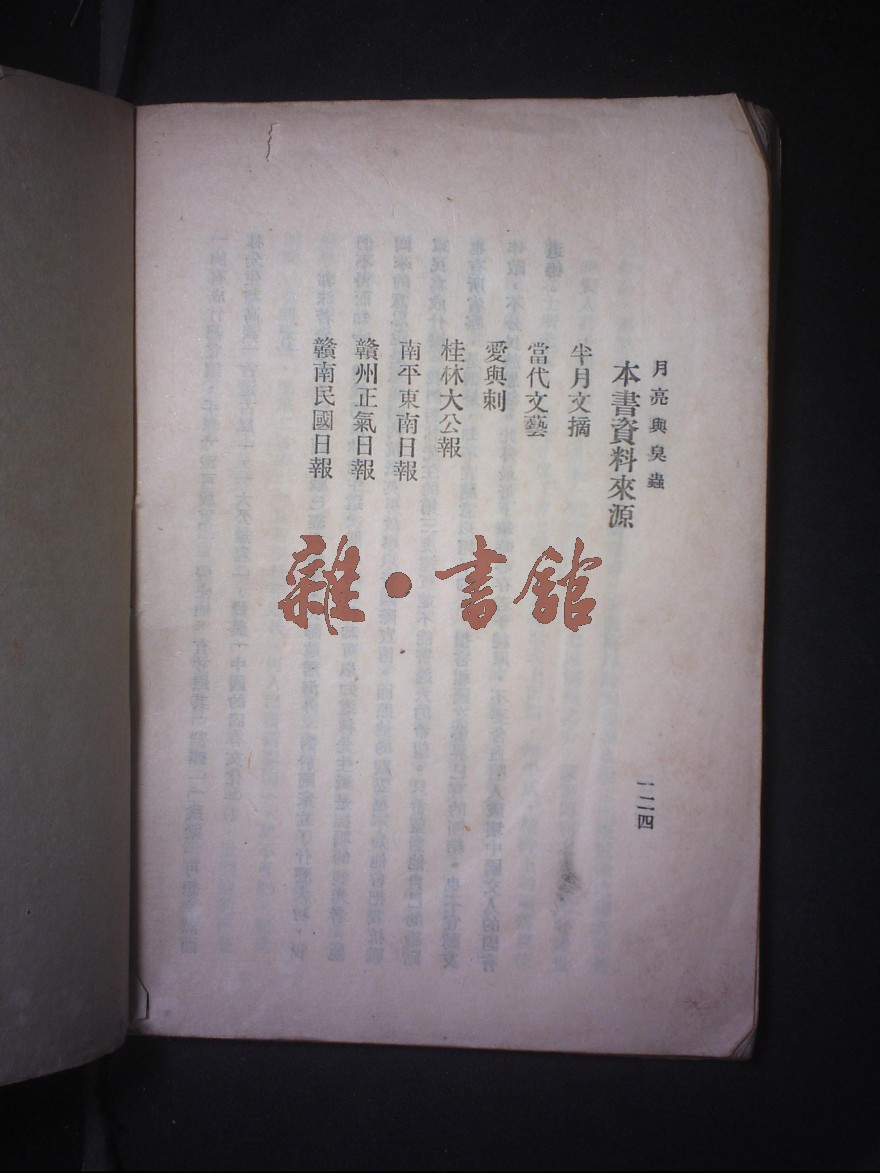 月亮與臭蟲
本書資料來源
半月文摘
當代文藝
愛與刺
桂林大公報
南平東南日報
贛州正氣日報
贛南民國日報
一二四
雜·書館